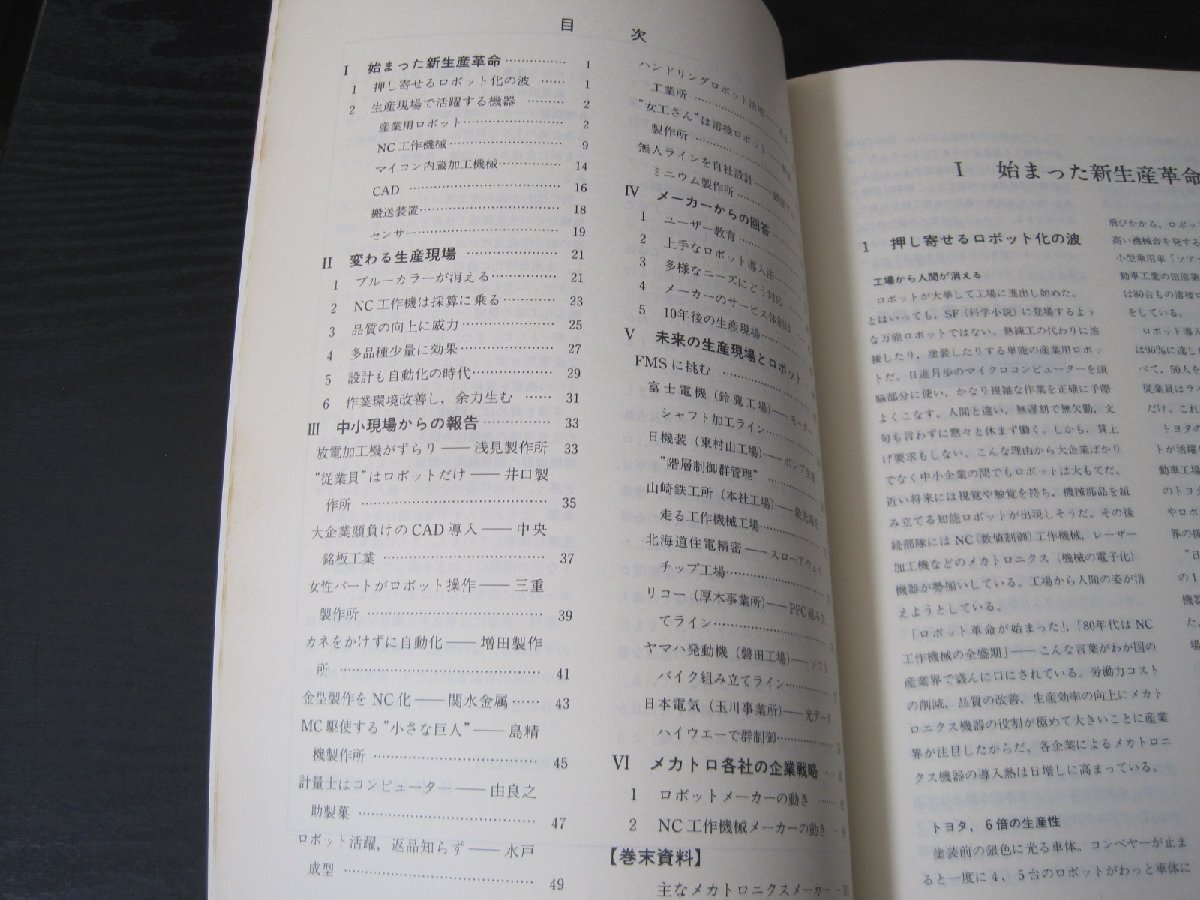 目 次
I 始まった新生産革命 1
1 押し寄せるロボット化の波 1
2 生産現場で活躍する機器 2
産業用ロボット 2
NC工作機械 9
マイコン内蔵加工機械 14
CAD 16
搬送装置 18
センサー 19
II 変わる生産現場 21
1 ブルーカラーが消える 21
2 NC工作機は採算に乗る 23
3 品質の向上に威力 25
4 多品種少量に効果 27
5 設計も自動化の時代 29
6 作業環境改善し，余力生む 31
III 中小現場からの報告 33
放電加工機がずらり——浅見製作所 33
“従業員”はロボットだけ——井口製
作所 35
大企業顔負けのCAD導入——中央
銘板工業 37
女性パートがロボット操作——三重
製作所 39
カネをかけずに自動化——増田製作
所 41
金型製作をNC化——関水金属 43
MC駆使する“小さな巨人”——島精
機製作所 45
計量士はコンピューター——由良之
助製菓 47
ロボット活躍，返品知らず——水戸
成型 49
ハンドリングロボット活用
工業所
“女工さん”は溶接ロボット
製作所
無人ラインを自社設計——
ミニウム製作所
IV メーカーからの回答
1 ユーザー教育
2 上手なロボット導入法
3 多様なニーズにどう対応
4 メーカーのサービス体制は
5 10年後の生産現場
V 未来の生産現場とロボット
FMSに挑む
富士電機（鈴鹿工場）——モーター
シャフト加工ライン
日機装（東村山工場）——ポンプ
“階層制御群管理”
山崎鉄工所（本社工場）——
走る工作機械工場
北海道住電精密——スローアウェイ
チップ工場
リコー（厚木事業所）——PPC組み立
てライン
ヤマハ発動機（磐田工場）——ソフト
バイク組み立てライン
日本電気（玉川事業所）——光データ
ハイウエーで群制御
VI メカトロ各社の企業戦略
1 ロボットメーカーの動き
2 NC工作機械メーカーの動き
【巻末資料】
主なメカトロニクスメーカー
I 始まった新生産革命
1 押し寄せるロボット化の波
工場から人間が消える
ロボットが大挙して工場に進出し始めた。
とはいっても，SF（科学小説）に登場するよ
うな万能ロボットではない。熟練工の代わりに溶
接したり，塗装したりする単能の産業用ロボッ
トだ。日進月歩のマイクロコンピューターを頭
脳部分に使い，かなり複雑な作業を正確に手際
よくこなす。人間と違い，無遅刻で無欠勤，文
句も言わずに黙々と休まず働く。しかも，賃上
げ要求もしない。こんな理由から大企業ばかり
でなく中小企業の間でもロボットは大もてだ。
近い将来には視覚や触覚を持ち，機械部品を組
み立てる知能ロボットが出現しそうだ。その後
続部隊にはNC（数値制御）工作機械，レーザー
加工機などのメカトロニクス（機械の電子化）
機器が勢揃いしている。工場から人間の姿が消
えようとしている。
「ロボット革命が始まった」，「80年代はNC
工作機械の全盛期」——こんな言葉がわが国の
産業界で盛んに口にされている。労働力コスト
の削減，品質の改善，生産効率の向上にメカト
ロニクス機器の役割が極めて大きいことに産業
界が注目したからだ。各企業によるメカトロニ
クス機器の導入熱は日増しに高まっている。
トヨタ，6倍の生産性
塗装前の銀色に光る車体。コンベヤーが止ま
ると一度に4，5台のロボットがわっと車体に
飛びかかる。ロボッ
高い機械音を発する
小型乗用車「ソア
動車工業の田原
は80台もの溶接
をしている。
ロボット導入
は90%に達し
べて，50人を
従業員はラ
だけ，これ
トヨタの
トが活躍し
動車工場
のトヨタ
やロボ
界の
“日
の1
機器
た。
場